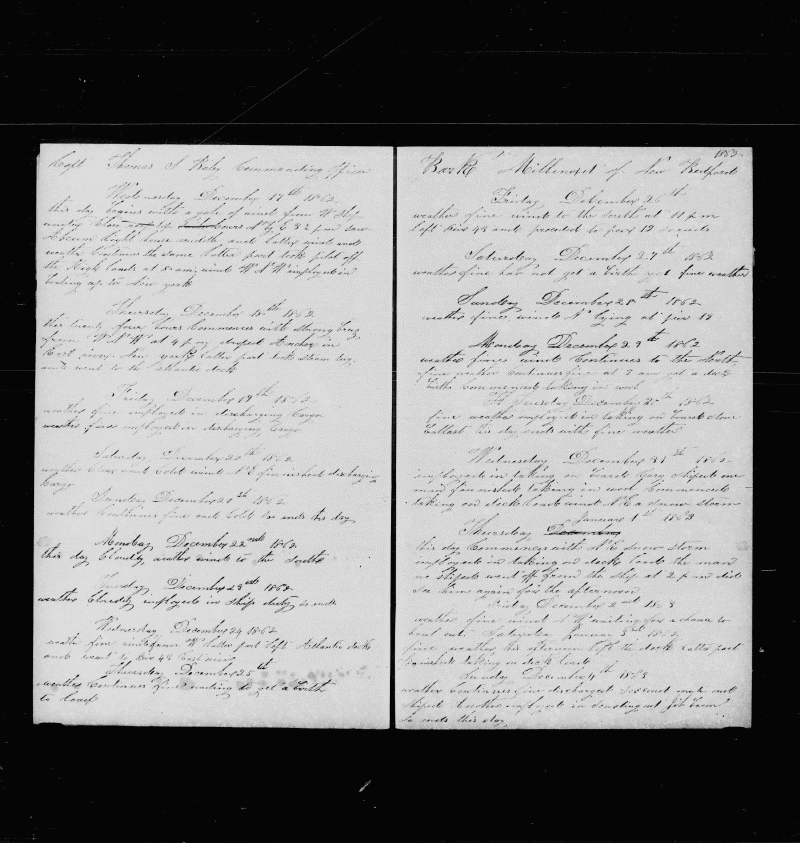 Capt Thomas S Commanding officer
Wednesday December 17th 1862
this day begins with a gale of wind from W ship
under Close up hours N by E 8 1/2 pm saw
light house middle and latter wind and
weather Continues the same latter part took pilot off
the High lands at 8 am wind W N W employed in
beating up to New york
Thursday December 18th 1862
this twenty four hours Commences with strong
from W N W at 4 pm droped Anchor in
East river New york latter part took steam tug
and went to the atlantic dock
Friday December 19th 1862
weather fine employed in discharging Cargo
weather fine employed in discharging Cargo
Saturday December 20th 1862
weather Clear and Cold wind N E finished discharging
Cargo
Sunday December 21st 1862
weather Continues fine and Cold so ends this day
Monday December 22nd 1862
this day Cloudy weather wind to the South
Tuesday December 23rd 1862
weather Cloudy employed in ships duty so ends
Wednesday December 24 1862
weather fine wind from W latter part left Atlantic dock
and went to Pier 48 East river
Thursday December 25th
weather Continues fine waiting to get a birth
to load
1862
Bark Millenoket of New Bedford
Friday December 26th
weather fine wind to the South at 11 pm
left Pier 48 and proceded to pier 12
Saturday December 27th 1862
weather fine has not got a birth yet fine weather
Sunday December 28th 1862
weather fine winds N lying at pier 12
Monday December 29th 1862
weather fine wind Continues to the North
fine weather Continues fine at 8 am got a dock
birth Commenced taking in
Tuesday December 30th 1862
fine weather employed in taking on board stone
ballast this day ends with fine weather
Wednesday December 31st 1862
employed in taking on board Cargo shiped one
man finished taking in wood Commenced
taking on deck load wind N E a snow storm
January 1st 1863
Thursday
this day Commences with N E snow storm
employed in taking on deck load the man
we shiped went off from the ship at 2 pm did
see him again for the afternoon
Friday December 2nd 1863
weather fine wind N W waiting for a chance to
haul out Saturday January 3rd 1862
fine weather this afternoon left the dock latter part
taking on deck load
Sunday December 4th 1863
weather Continues fine discharged second mate and
shiped another employed in sending out Jib boom
so ends this day